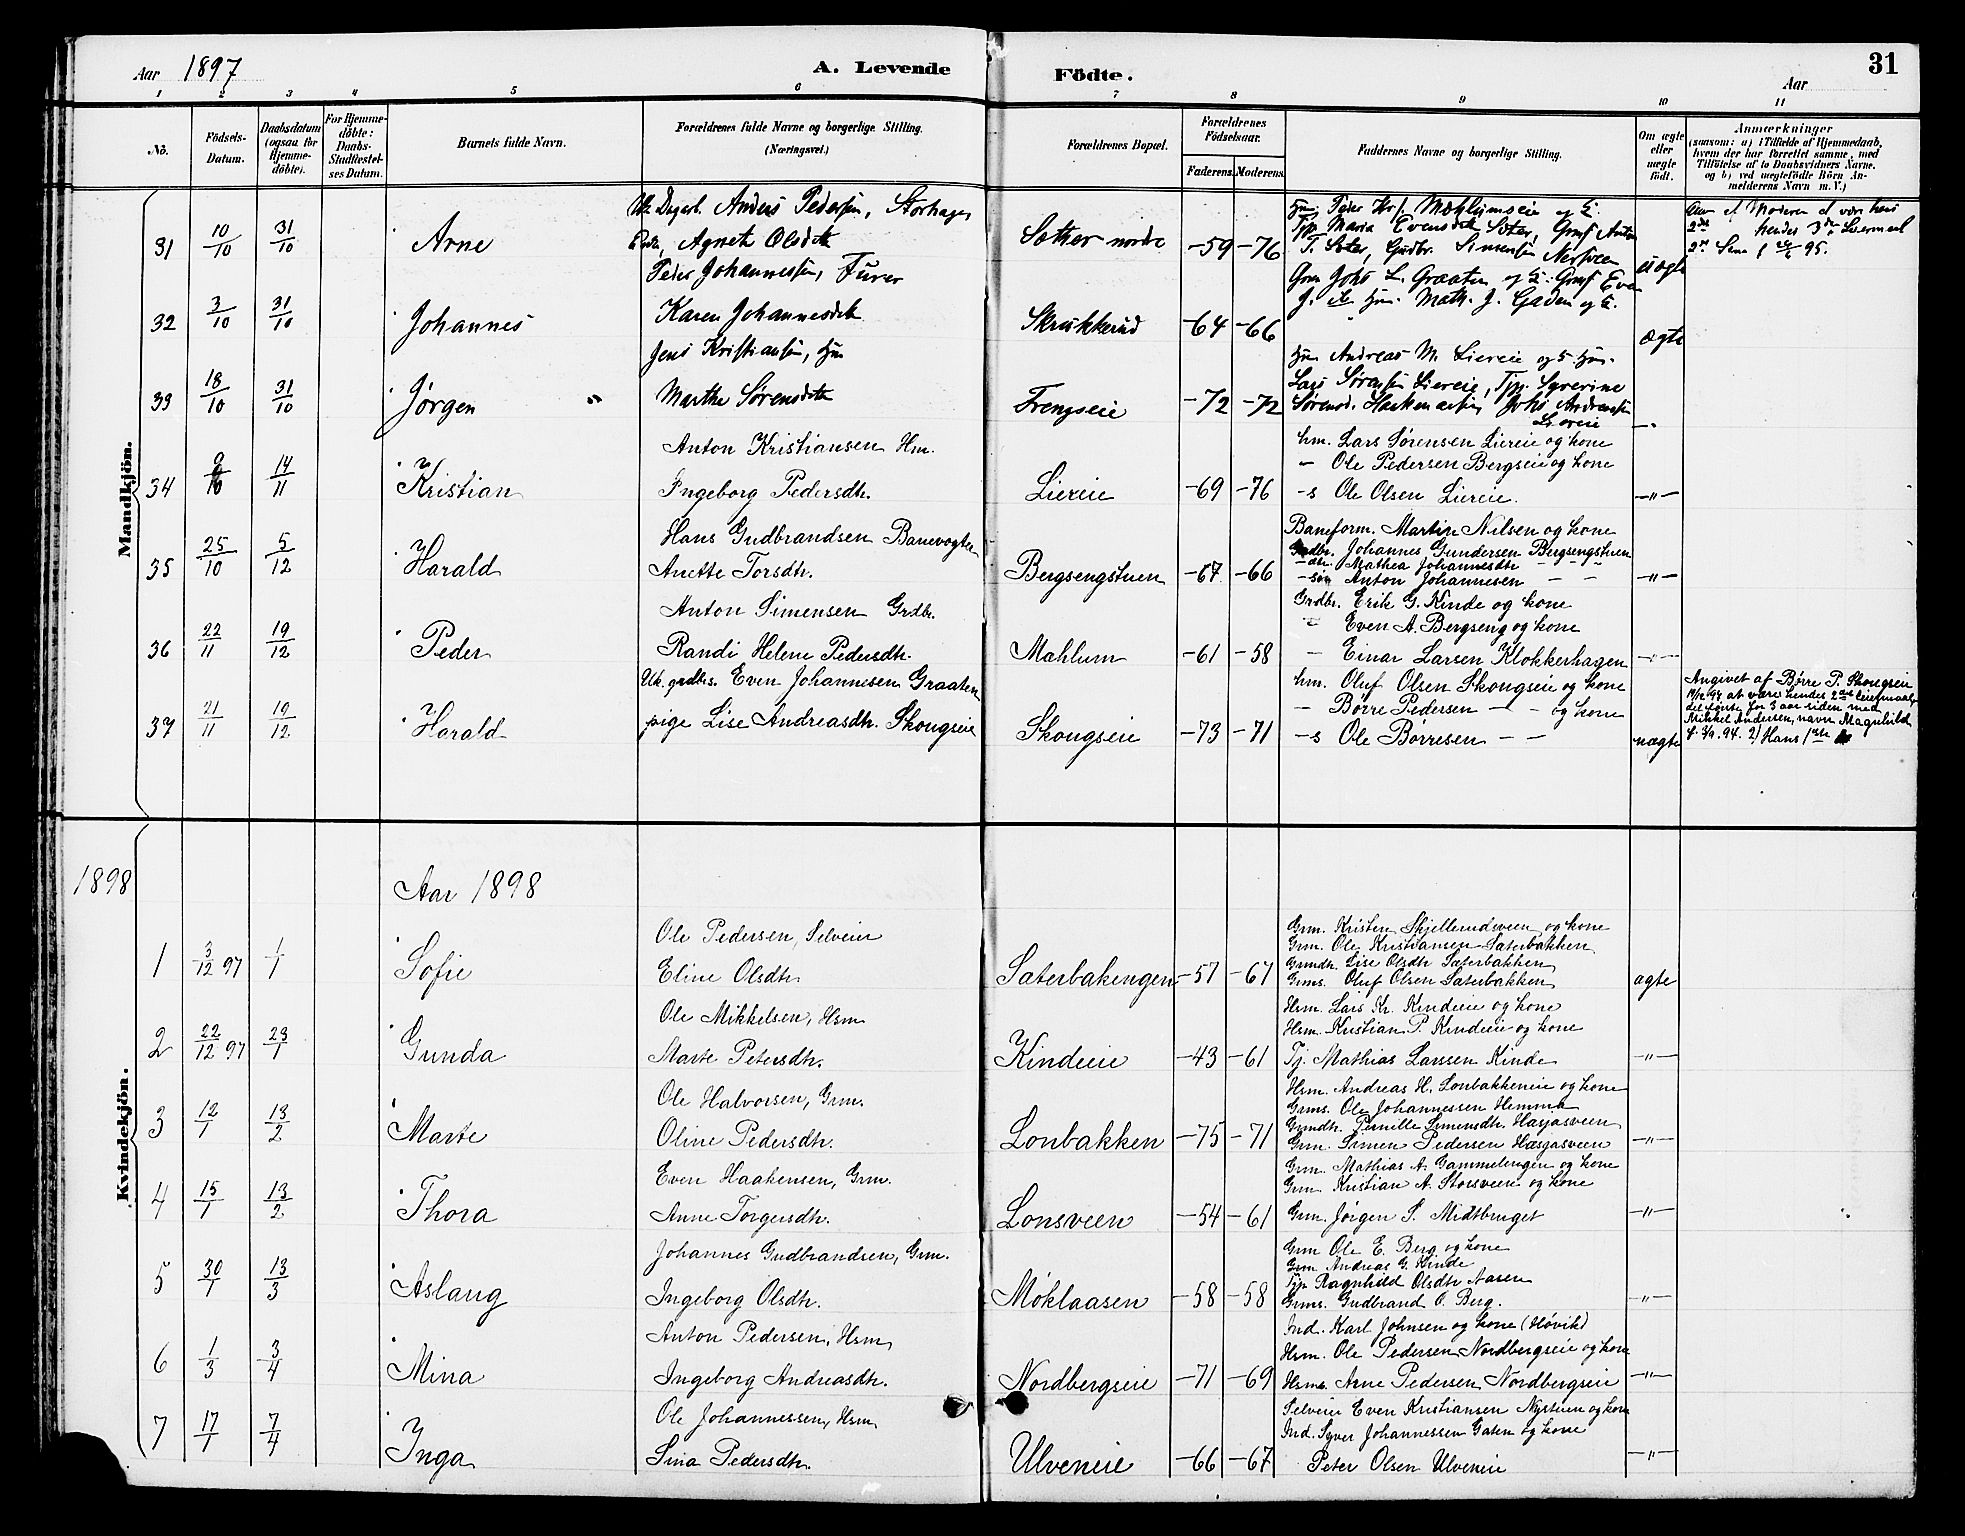 Aar 1897 A. Levende Födte. Aar 31
1 2 3 4 5 6 7 8 9 10 11
No. Födsels-Datum. Daabsdatum (ogsaa for Hjemme-döbte). For Hjemme-döbte: Daabs-Stadfæstel-ses Datum. Barnets fulde Navn. Forældrenes fulde Navne og borgerlige Stilling. (Næringsvei.) Forældrenes Bopæl. Forældrenes Födselsaar. Faderens. Moderens. Faddernes Navne og borgerlige Stilling. Om ægte eller uægte födt. Anmærkninger (saasom: a) i Tilfælde af Hjemmedaab, hvem der har forrettet samme, med Tilföielse af to Daabsvidners Navne. og b) ved uægtefödte Börn An-melderens Navn m. V.)
Mandkjön.
Uk. Dagarb. Anders Pedersen, Storhagen
31 10/10 31/10 Arne Agnete Olsdtr Sæther nordre -59 -76 uægte
Maria Evensdtr Sæter, Anton
Peder Johannessen, Furer
32 3/10 31/10 Johannes Karen Johannesdtr Skrukkerud -64 -66 ægte
Jens Kristiansen, Hm
Hm Andreas M. Liereie og
33 18/10 31/10 Jørgen Marthe Sørensdtr Frengseie -72 -72
Lars Sørensen Liereie, Tjp. Syverine
Andreassen
Liereie
Anton Kristiansen Hm.
hm. Lars Sørensen Liereie og kone
- Ole Pedersen Bergseie og kone
34 9/10 14/11 Kristian Ingeborg Pedersdtr. Liereie -69 -76 -s Ole Olsen Liereie. -"-
Hans Gudbrandsen Banevogter
Baneform. Martin Nilsen og kone
Grdbr. Johannes Gundersen Bergsengstuen
-dtr. Mathea Johannesdtr - " -
35 25/10 5/12 Harald Anette Torsdtr. Bergsengstuen -67 -66 -søn Anton Johannesen - - -"-
Anton Simensen Grdbr.
Grdbr. Erik G. Kinde og kone
" Even A. Bergseng og kone
36 22/11 19/12 Peder Randi Helene Pedersdtr. Mæhlum -61 -58 - Einar Larsen Klokkerhagen -"-
Uk. grdbrs. Even Johannesen Graaten
hm. Oluf Olsen Skougseie og kone
- Børre Pedersen - - og kone
37 21/11 19/12 Harald pige Lise Andreasdtr. Skougseie Skougseie -73 -71 -s Ole Børresen - - uægte
Angivet af Børre P. Skougseie
at være hendes 2det leiermaal,
det første for 3 aar siden med
Mikkel Andersen, navn Magnhild
Kvindekjön.
1898 Aar 1898
Ole Pedersen, Selveier
Grm. Kristen Skjellerudsveen og kone
Grm. Ole Kristiansen Sæterbakken
Grmdtr. Lise Olsdtr Sæterbakken
1 3/12 97 1/1 Sofie Eline Olsdtr. Sæterbakengen -57 -67 Grms. Oluf Olsen Sæterbakken ægte
Ole Mikkelsen, Hsm
Hsm. Lars Kr. Kindeie og kone
Hsm. Kristian P. Kindeie og kone
2 22/12 97 23/1 Gunda Marte Petersdtr. Kindeie -43 -61 Tj. Mathias Larssen Kinde -"-
Ole Halvorsen, Grm.
Hsm. Andreas H. Lonbakkeneie og kone
Grms. Ole Johannessen Hemma
Grmdtr. Pernille Simensdtr. Hasjasveen
3 12/1 13/2 Marte Oline Pedersdtr. Lonbakken -75 -71 Grm. Simen Pedersen Hasjasveen -"-
Even Haakensen, Grm.
Grm. Mathias A. Gammelengen og kone
Grm. Kristian A. Storsveen og kone
4 15/1 13/2 Thora Anne Torgersdtr. Lonsveen -54 -61 Grm. Jørgen S. Midtbruget -"-
Johannes Gudbrandsen, Grm.
Grm Ole E. Berg og kone
Grm Andreas G. Kinde
Tjp Ragnhild Olsdtr Aasen
5 30/1 13/3 Aslaug Ingeborg Olsdtr. Møklaasen -58 -58 Grms. Gudbrand O. Berg. -"-
Anton Pedersen, Hsm
Ind. Karl Johnsen og kone (Høvik)
Hsm. Ole Pedersen Nordbergseie og kone
6 1/3 3/4 Mina Ingeborg Andreasdtr. Nordbergseie -71 -69 Hsms. Arne Pedersen Nordbergseie -"-
Ole Johannessen, Hsm
Selveier Even Kristiansen Nystuen og kone
Ind. Syver Johannessen Gaten og kone
7 17/1 7/4 Inga Sina Pedersdtr. Ulveneie -66 -67 Peter Olsen Ulveneie -"-